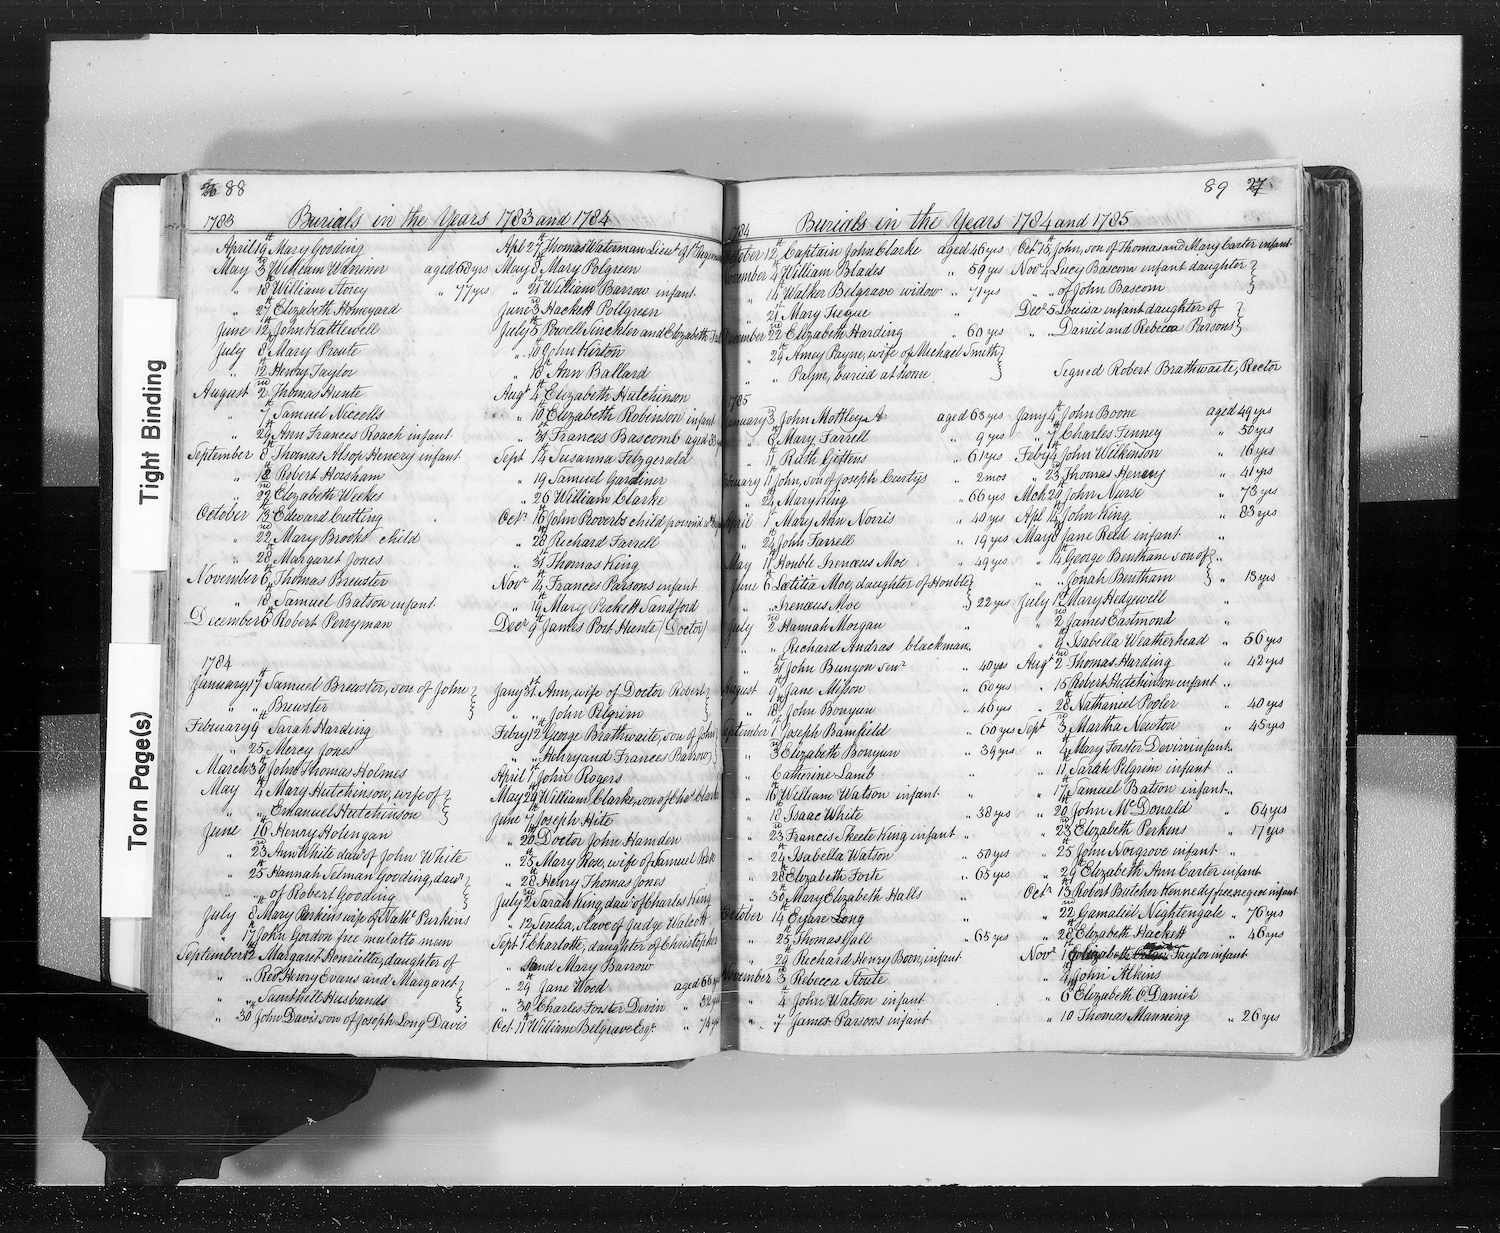 Tight Binding
Torn Page(s)
88
1783 Burials in the Years 1783 and 1784
April 19th Mary Gooding
May 3d William Warriner aged 68 yrs
" 18 William Storey " 77 yrs
" 27 Elizabeth Honeyard
June 12th John Kattlewell
July 8th Mary Proute
" 12 Henry Taylor
August 2nd Thomas Hunte
" 7th Samuel Niccolls
" 29th Ann Frances Roach infant
September 8th Thomas Alsop Henery infant
" 18th Robert Horsham
" 22nd Elizabeth Weekes
October 13th Edward Cutting
" 22nd Mary Brooks child
" 28th Margaret Jones
November 6th Thomas Brewster
" 13th Samuel Batson infant
December 6th Robert Perryman
1784
January 17th Samuel Brewster, son of John
" " Brewster
February 9th Sarah Harding
" 25 Mercy Jones
March 30th John Thomas Holmes
May 4th Mary Hutchinson, wife of
" " Emanuel Hutchinson
June 16th Henry Holengan
" 23rd Ann White daur of John White
" 25 Hannah Selman Gooding, daur
" " of Robert Gooding
July 8th Mary Perkins wife of Nathl Perkins
" 17th John Gordon free mulatto man
September 12th Margaret Henrietta, daughter of
" " Revd Henry Evans and Margaret
" " Samthill Husbands
" 30 John Davis son of Joseph Long Davis
Apl 27th Thomas Waterman Lieut of 1st
May 8th Mary Polgreen
" 21st William Barrow infant
June 3rd Hackett Pollgreen
July 5th Powell Sinckler and Elizabeth
" 10th John Kirton
" 18th Ann Ballard
Augt 4th Elizabeth Hutchinson
" 10th Elizabeth Robinson infant
" 31st Frances Bascomb aged
Sept 14th Susanna Fitzgerald
" 19th Samuel Gardiner
" 26 William Clarke
Octr 16th John Roverts child
" 28 Richard Farrell
" 31st Thomas King
Novr 14th Frances Parsons infant
" 19th Mary Peckett Sandford
Decr 9th James Port Hunte (Doctor)
Jany 31st Ann, wife of Doctor Robert
" " John Pilgrim
Feby 12th George Brathwaite, son of John
" " Henry and Frances Barrow
April 1st John Rogers
May 29th William Clarke, son of Chas Clarke
June 7th Joseph Hite
" 20th Doctor John Hamden
" 25 Mary Rose, wife of Samuel
" 28th Henry Thomas Jones
July 2nd Sarah King, daur of Charles King
" 12 Serelia, slave of Judge Walcott
Sept 1st Charlotte, daughter of Christopher
" and Mary Barrow
" 29th Jane Wood aged 66
" 30th Charles Forster Devin " 52
Oct 11th William Belgrave Esqr " 74
89
1784 Burials in the Years 1784 and 1785
October 12th Captain John Clarke aged 46 yrs
November 4th William Blades " 58 yrs
" 14th Walker Belgrave widow " 71 yrs
" 21st Mary Tregue "
December 22nd Elizabeth Harding " 60 yrs
" 29th Amey Payne, wife of Michael Smith
" " Palme, buried at home
1785
January 3d John Mottley A aged 63 yrs
" 6th Mary Farrell " 9 yrs
" 11th Ruth Gittens " 61 yrs
February 11th John, son of Joseph Curtys " 2 mos
" 24th Mary King " 66 yrs
April 1st Mary Ann Norris " 40 yrs
" 29th John Farrell " 19 yrs
May 11th Honble Irenæus Moe " 49 yrs
June 6th Lætitia Moe, daughter of Honble
" Irenæus Moe " 22 yrs
July 2nd Hannah Morgan "
" " Richard Andras blackman "
" 31st John Bunyon senr " 40 yrs
August 9th Jane Mixon " 60 yrs
" 18th John Bonyun " 46 yrs
September 1st Joseph Bamfield " 60 yrs
" 3d Elizabeth Bonyun " 39 yrs
" Catherine Lamb "
" 16th William Watson infant "
" 18th Isaac White " 38 yrs
" 23 Francis Skeete King infant "
" 24th Isabella Watson " 50 yrs
" 28th Elizabeth Forte " 65 yrs
" 30th Mary Elizabeth Halls "
October 14th Eyare Long "
" 25th Thomas Gall " 65 yrs
" 29th Richard Henry Boon, infant "
November 3rd Rebecca Stoute "
" 4th John Watson infant
" 7 James Parsons infant
Octr 15th John, son of Thomas and Mary Carter infant
Novr 4 Lucy Bascom infant daughter
" " of John Bascom
Decr 5 Louisa infant daughter of
" " Daniel and Rebecca Parsons
Signed Robert Brathwaite, Rector
Jany 4th John Boone aged 49 yrs
" 7th Charles Finney " 50 yrs
Feby 14th John Wilkinson " 16 yrs
" 23rd Thomas Henery " 41 yrs
Mch 29th John Nurse " 73 yrs
Apl 14th John King " 83 yrs
May 8th Jane Keld infant "
" 14th George Bentham son of
" " Jonah Bentham " 18 yrs
July 1st Mary Hedgewell "
" 2nd James Eastmond "
" 9th Isabella Weatherhead " 56 yrs
Augt 2nd Thomas Harding " 42 yrs
" 15 Robert Hutchinson infant "
" 28th Nathaniel Pooler " 40 yrs
Sept 3rd Martha Newton " 45 yrs
" 4th Mary Forster Devin infant "
" 11th Sarah Pilgrim infant "
" 17th Samuel Batson infant "
" 20th John McDonald " 64 yrs
" 23rd Elizabeth Perkins " 17 yrs
" 25 John Norgrove infant "
" 29th Elizabeth Ann Carter infant
Octr 13th Robert Butcher Kennedy free negroe infant
" 22nd Gamaliel Nightengale " 76 yrs
" 28th Elizabeth Hackett " 46 yrs
Novr 1st Elizabeth Taylor infant
" 2nd John Atkins
" 6th Elizabeth O'Daniel
" 10 Thomas Manneng " 26 yrs